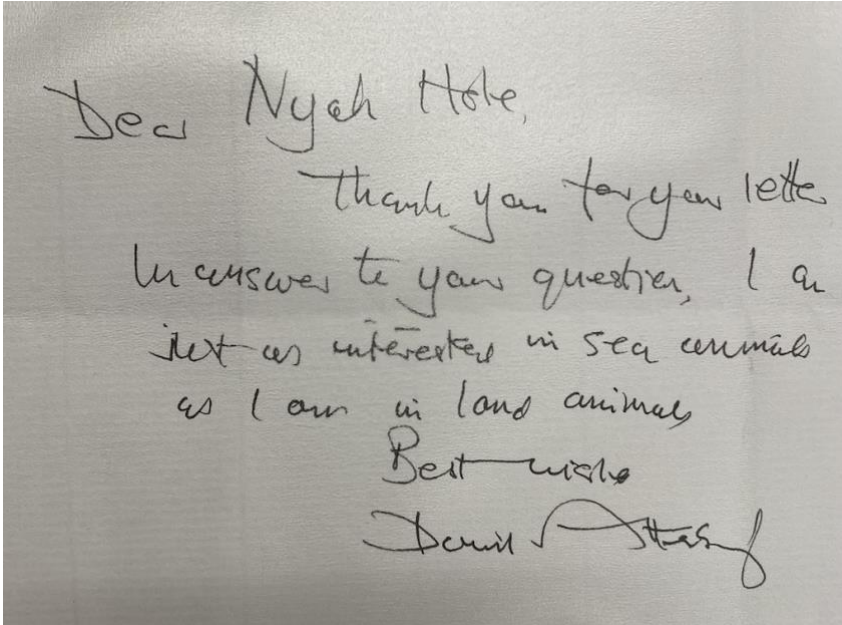 Dear Nyah Hole,
Thank you for your letter
In answer to your question, I am
just as interested in sea animals
as I am in land animals
Best wishes
David Attenborough